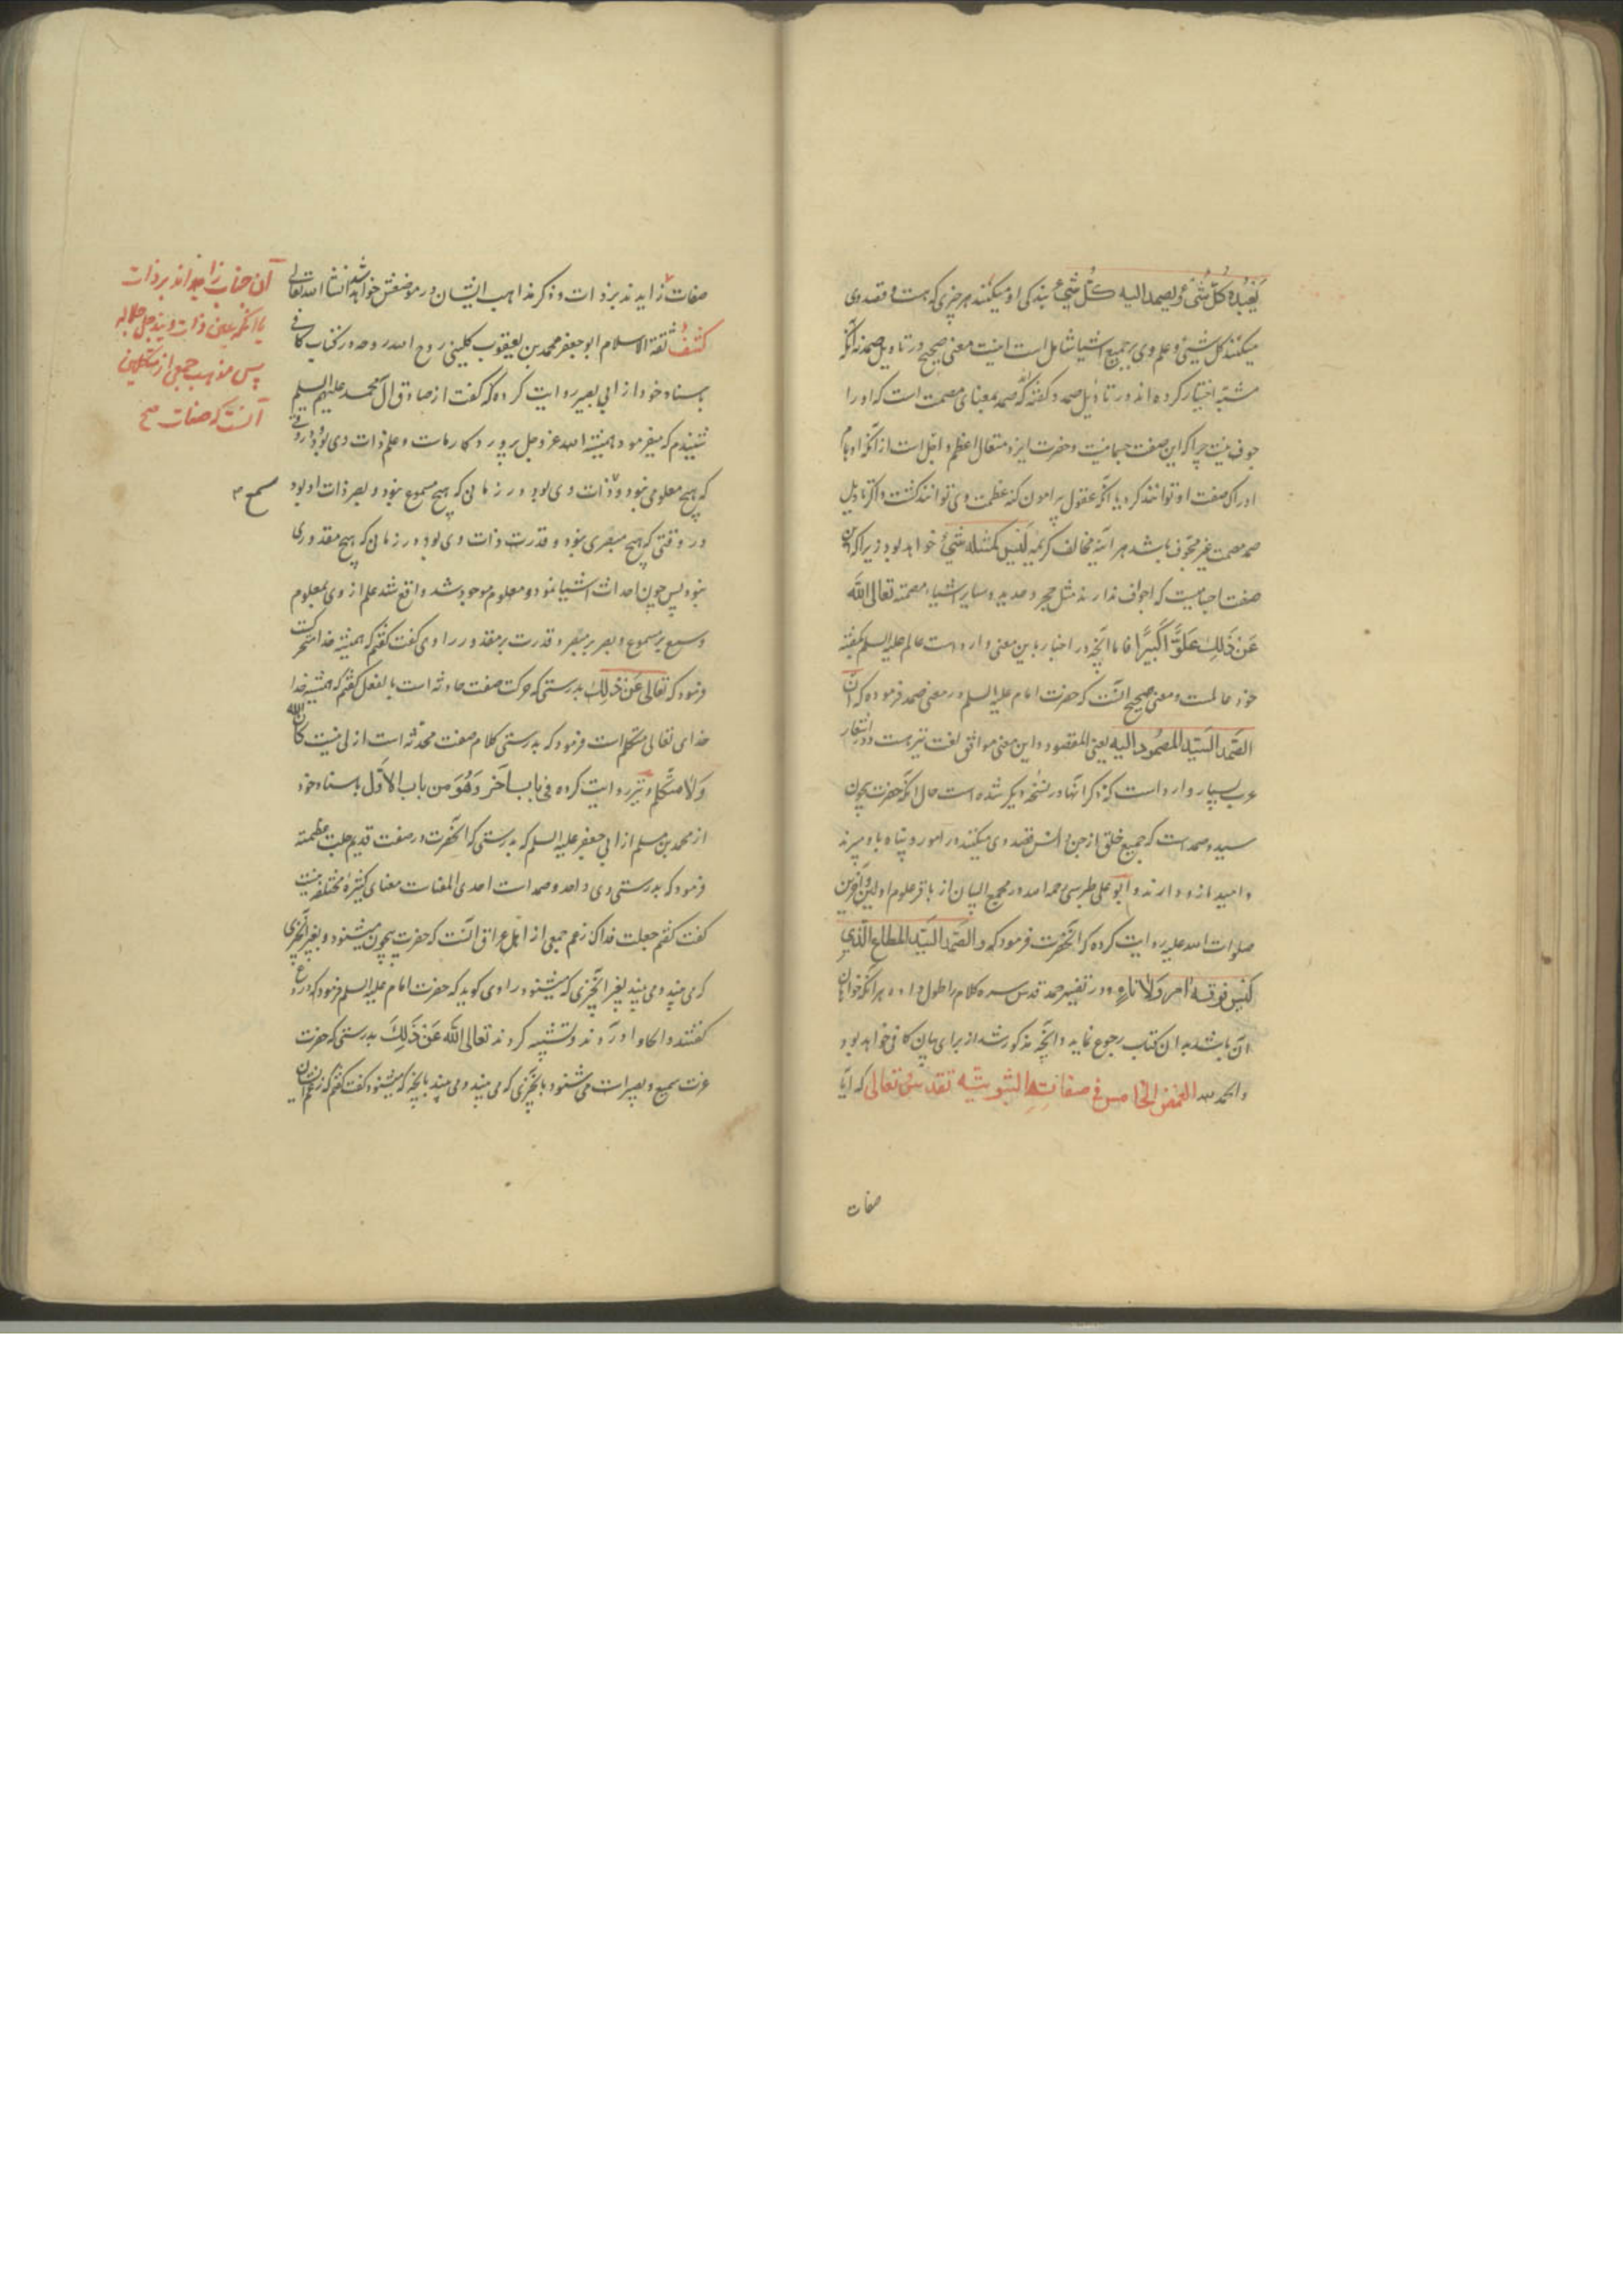 یَعْبُدُهُ کُلُّ شَیْءٍ ویصمد الیه کُلُّ شَیْءٍ بندکی او میکنند هر چیزی که هست و قصد وی
میکنند کل شیئ و علم وی بر جمیع اشیا شامل است اینست معنی صحیح در تاویل صمد نه آنکه
مشبّه اختیار کرده اند در تاویل صمد و گفته که صمد بمعنای مصمت است که او را
جوف نیست چرا که این صفت جسمانیت و حضرت ایزد متعال اعظم و اجل است از آنکه اوهام
ادراک صفت او توانند کرد یا آنکه عقول پیرامون کنه عظمت وی توانند کشت و اکر تاویل
صمد مصمت غیر مجوف باشد هر آینه مخالف کریمه لَیْسَ کَمِثْلِهِ شَیْءٌ خواهد بود زیرا که این
صفت اجسامیست که اجواف ندارند مثل حجر و حدید و سایر اشیاء مصمته تعالی اللَّه
عَنْ ذَلِكَ عُلُوًّا کَبِیرًا فاما آنچه در اخبار باین معنی وارد است عالم علیه السلم بکفته
خود عالمست و معنی صحیح آنست که حضرت امام علیه السلم در معنی صمد فرموده که انَّ
الصَّمَد السَّیِّد المصمُود الیه یعنی المقصود و این معنی موافق لغت نیز هست و در اشعار
عرب بسیار وارد است که ذکر آنها در نسخه دیکر شده است حال آنکه حضرت بیچون
سید و صمد است که جمیع خلق از جن و انس قصد وی میکنند در امور و پناه باو میبرند
و امید از او دارند و ابو علی طبرسی رحمه الله در مجمع البیان از باقر علوم اولین و آخرین
صلوات الله علیه روایت کرده که آنحضرت فرمود که و الصَّمَد السَّیِّد المطاع الَّذي
لَیْسَ فوقه آمر وَلَا ناهٍ و در تفسیر صمد قدس سره کلام را طول داده هر آنکه خواهان
آن باشد بدان کتاب رجوع نماید و آنچه مذکور شد از برای بیان کافی خواهد بود
و الحمد لله الغمض الخامس في صفاته الثبوتیّه تقدس و تعالی که آیا
صفات
صفات زایدند بر ذات و ذکر مذاهب ایشان در موضعش خواهد شد انشا الله تعالی
کشف ثقة الاسلام ابو جعفر محمد بن یعقوب کلینی روح الله روحه در کتاب کافی
باسناد خود از ابی بصیر روایت کرده که گفت از صادق آل محمد علیهم السلم
شنیدم که میفرمود همیشه الله عز و جل پروردکار ماست و علم ذات وی بود در وقتی
که هیچ معلومی نبود و ذات وی بود در زمانی که هیچ مسموع نبود و بصر ذات او بود
در وقتی که هیچ مبصری نبود و قدرت ذات وی بود در زمانی که هیچ مقدوری
نبود پس چون احداث اشیا نمود و معلوم موجود شد واقع شد علم از وی بمعلوم
و سمع بر مسموع و بصر بر مبصر و قدرت بر مقدور راوی کفت کفتم که همیشه خدا متحرکست
فرمود که تعالی عَنْ ذَلِكَ بدرستی که حرکت صفت حادثه است بالفعل کفتم که همیشه خدا
خدای تعالی متکلم است فرمود که بدرستی کلام صفت محدثه است ازلی نیست کان اللّٰه
وَلَا مُتَکَلِّم و نیز روایت کرده في باب آخر وَهُوَ من باب الاوّل باسناد خود
از محمد بن مسلم از ابی جعفر علیه السلم که بدرستی که آنحضرت در صفت قدیم جلت عظمته
فرمود که بدرستی وی واحد و صمد است احدی المعنی است معنای کثیره مختلفه نیست
کفت کفتم جعلت فداک زعم جمعی از اهل عراق آنست که حضرت بیچون میشنود و بغیر آنچیزی
که می بیند و می بیند بغیر آنچیزی که میشنود راوی کوید که حضرت امام علیه السلم فرمود که دروغ
کفتند و الحاد آوردند و تشبیه کردند تعالی اللَّه عَنْ ذَلِكَ بدرستی که حضرت
عزت سمیع و بصیر است می شنود بآنچیزی که می بیند و می بیند بآنچه که میشنود کفت کفتم که زعم ایشان
آن جناب زایداند بر ذات
یا آنکه عین ذات ویند جل جلاله
پس مذهب جمعی از متکلمین
آنست که صفات صح
سمع صح